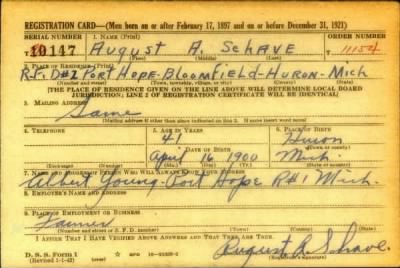 REGISTRATION CARD—(Men born on or after February 17, 1897 and on or before December 31, 1921)
SERIAL NUMBER 1. NAME (Print) ORDER NUMBER
T 10147 August A. Schave 11154
(First) (Middle) (Last)
2. PLACE OF RESIDENCE (Print)
R.F.D#1 Port Hope-Bloomfield-Huron-Mich
(Number and street) (Town, township, village, or city) (County) (State)
[THE PLACE OF RESIDENCE GIVEN ON THE LINE ABOVE WILL DETERMINE LOCAL BOARD
JURISDICTION; LINE 2 OF REGISTRATION CERTIFICATE WILL BE IDENTICAL]
3. MAILING ADDRESS
Same
[Mailing address if other than place indicated on line 2. If same insert word same]
4. TELEPHONE 5. AGE IN YEARS 6. PLACE OF BIRTH
41 Huron
DATE OF BIRTH (Town or county)
April 16 1900 Mich.
(Exchange) (Number) (Mo.) (Day) (Yr.) (State or country)
7. NAME AND ADDRESS OF PERSON WHO WILL ALWAYS KNOW YOUR ADDRESS
Albert Young-Port Hope R#1 Mich.
8. EMPLOYER'S NAME AND ADDRESS
9. PLACE OF EMPLOYMENT OR BUSINESS
Farmer
(Number and street or R. F. D. number) (Town) (County) (State)
I AFFIRM THAT I HAVE VERIFIED ABOVE ANSWERS AND THAT THEY ARE TRUE.
D. S. S. Form 1
(Revised 1-1-42) (over)
August A Schave.
(Registrant's signature)